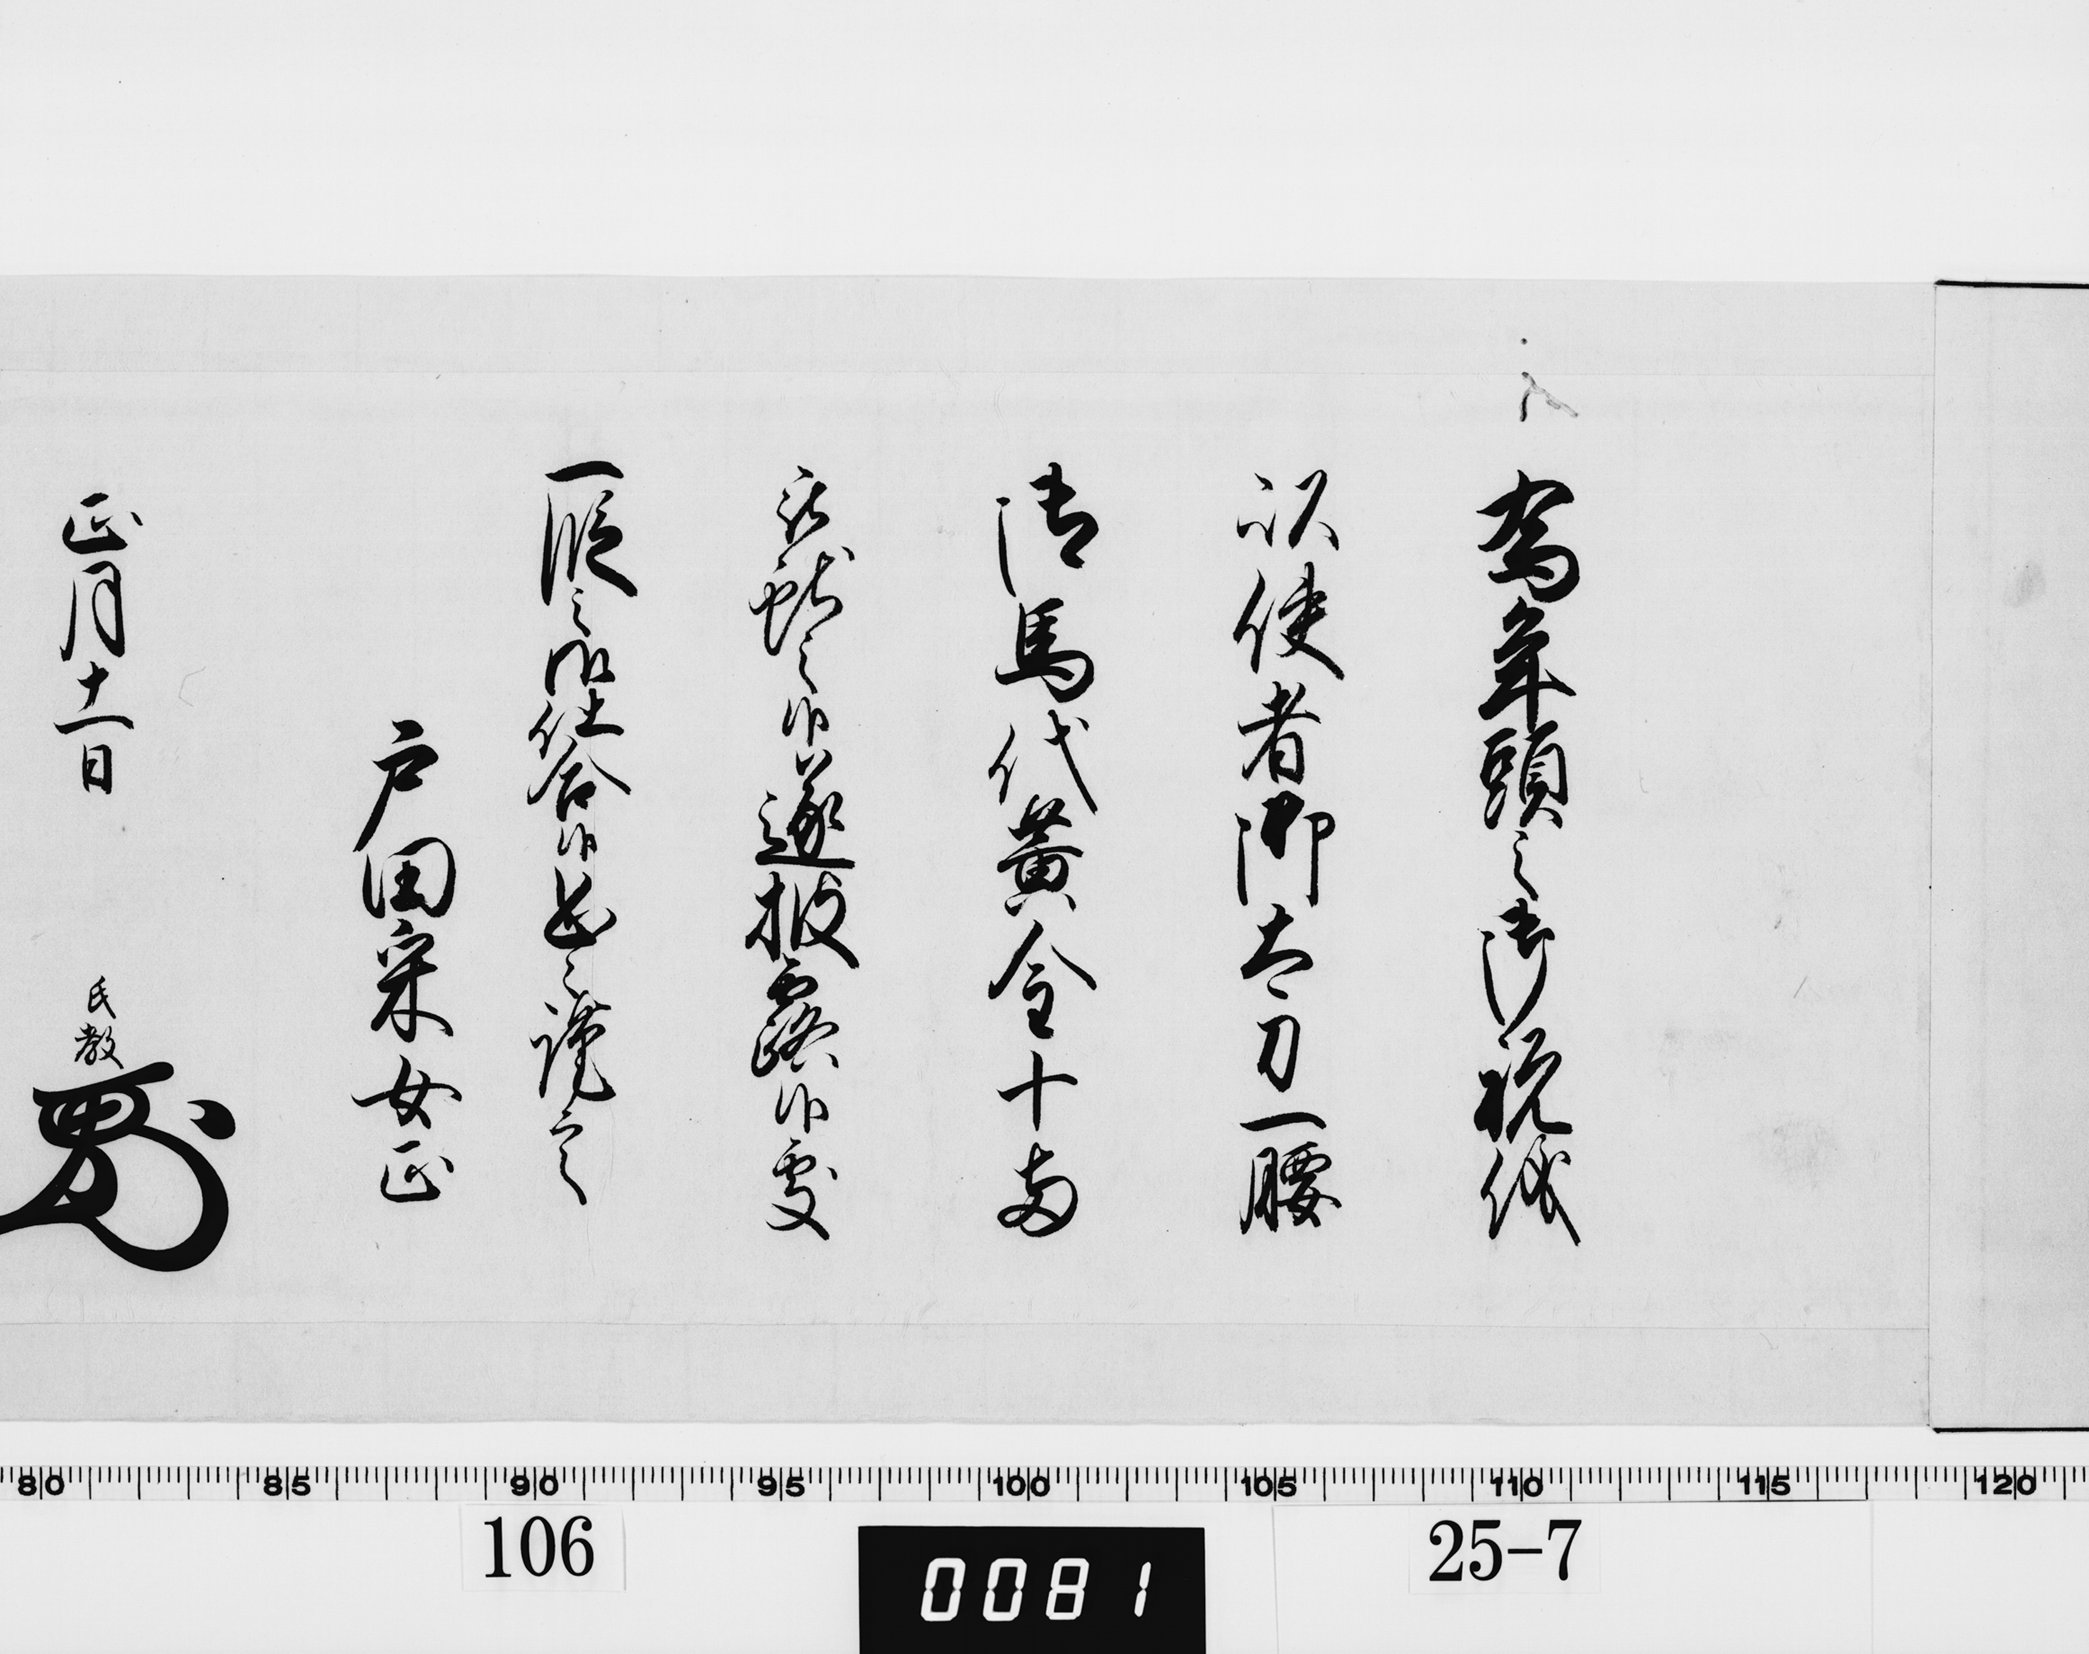 為年頭之御祝儀
以使者御太刀一腰
御馬代黄金十両
献之候遂披露候処
一段之御仕合候恐々謹言
戸田采女正
正月十一日
氏教
80 85 90 95 100 105 110 115 120
106
25-7
0081